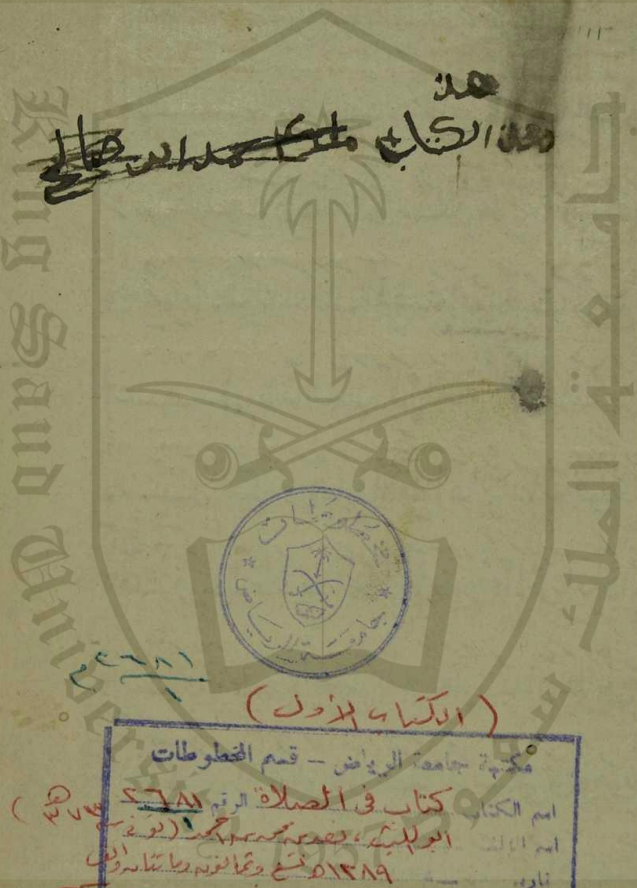 هذا
هذا الكتاب ملك محمد ابو صالح
King Saud University
جامعة الملك سعود
مخطوطات
جامعة الرياض
٢٦٨١
١
م
(الكتاب الأول)
مكتبة جامعة الرياض - قسم المخطوطات
اسم الكتاب كتاب في الصلاة الرقم ٢٦٨١
اسم المؤلف ابو الليث، نصر بن محمد بن احمد
١٢٨٩ تسع وثمانون ومائتان والف
1957